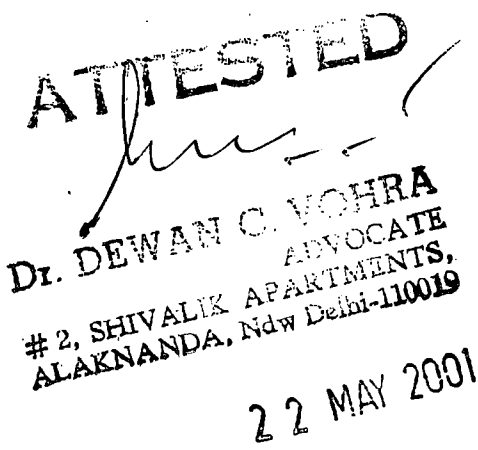 ATTESTED
Dr. DEWAN C. VOHRA
ADVOCATE
# 2, SHIVALIK APARTMENTS,
ALAKNANDA, Ndw Delhi-110019
22 MAY 2001